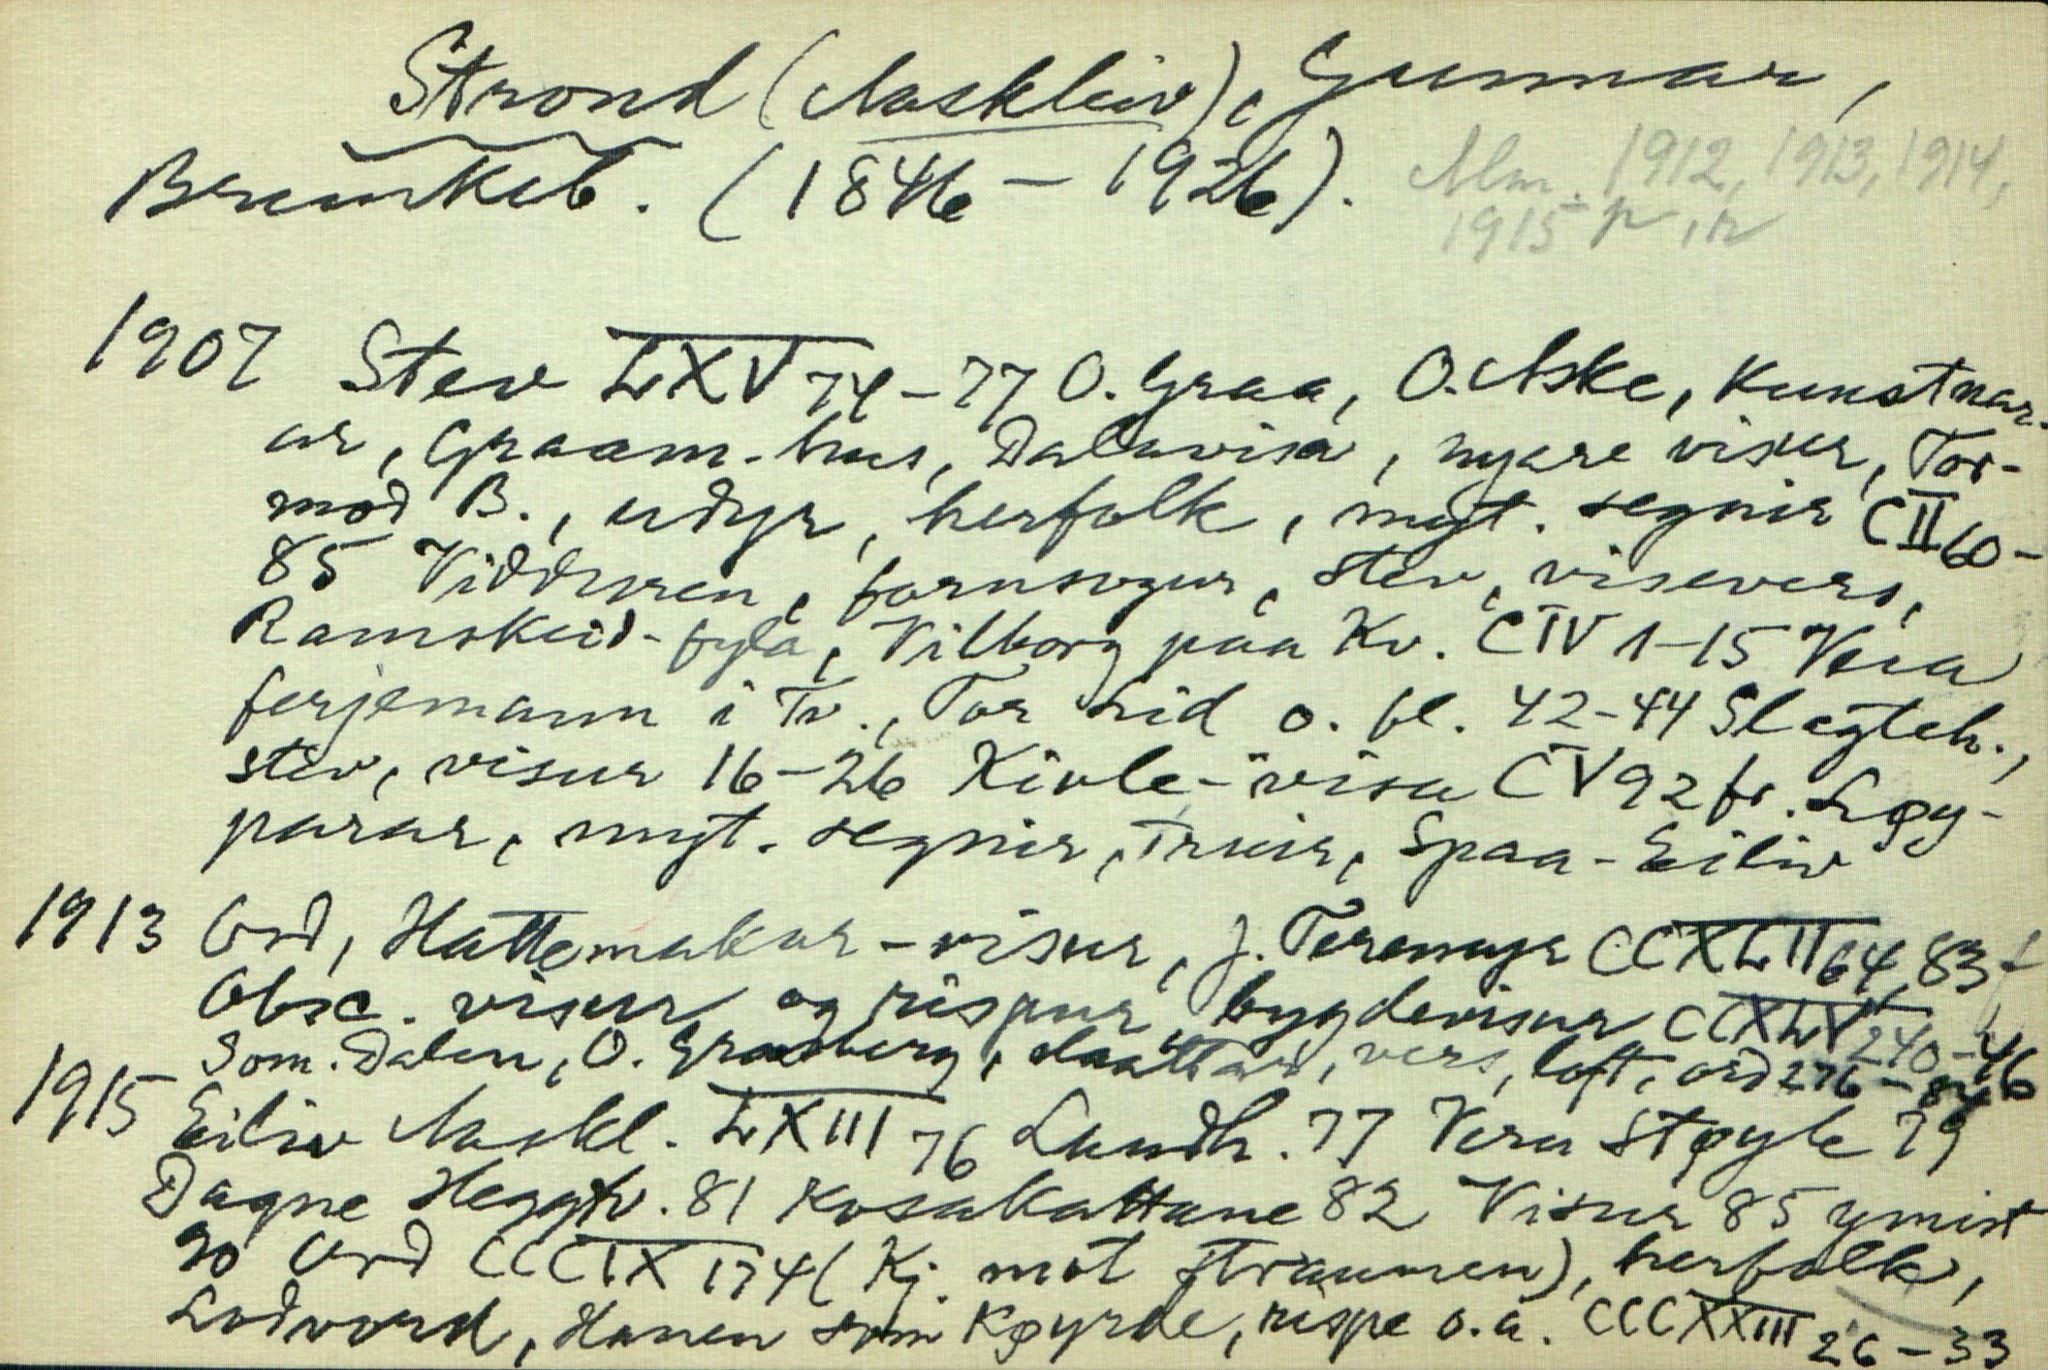 Strond (Naskleiv), Gunnar,
Brunkeb. (1846 – 1926). Alm. 1912, 1913, 1914,
1915
1907 Stev LXV 74–77 O. Graa, O. Aske, Kunstnar-
ar, Graam-hus, Dalavisa, nyare visur, Tor-
mod B., udyr, herfolk, myt. segnir CII 60–
85 Vidduren, fornsogur, stev, visevers,
Ramskeid-fyla, Vilborg paa Kv. CIV 1–15 Vera
ferjemann i Tv., Tor Lid o. fl. 42–44 Slegteh.,
stev, visur 16–26 Kivle-visa CV 92 fr. Løy-
parar, myt. segnir, Truir, Spaa-Eiliv
1913 Ord, Hattemakar-visur, J. Toremyr CCXLII 64, 83 f
Obsc. visur og rispur, bygdevisur CCXLV 240–46
Som. Dalen, O. Graaberg, slaattar, vers, loft, ord 276–84
1915 Eiliv Naskl. LXIII 76 Landh. 77 Vera Støyle 79
Dagne Heggtv. 81 Kosakattane 82 Visur 85 ymist
90 Ord CCCIX 174 (Kj. mot straumen), herfolk,
Lodvord, Hanen som Køyrde, rispe o.a. CCCXXIII 26–33